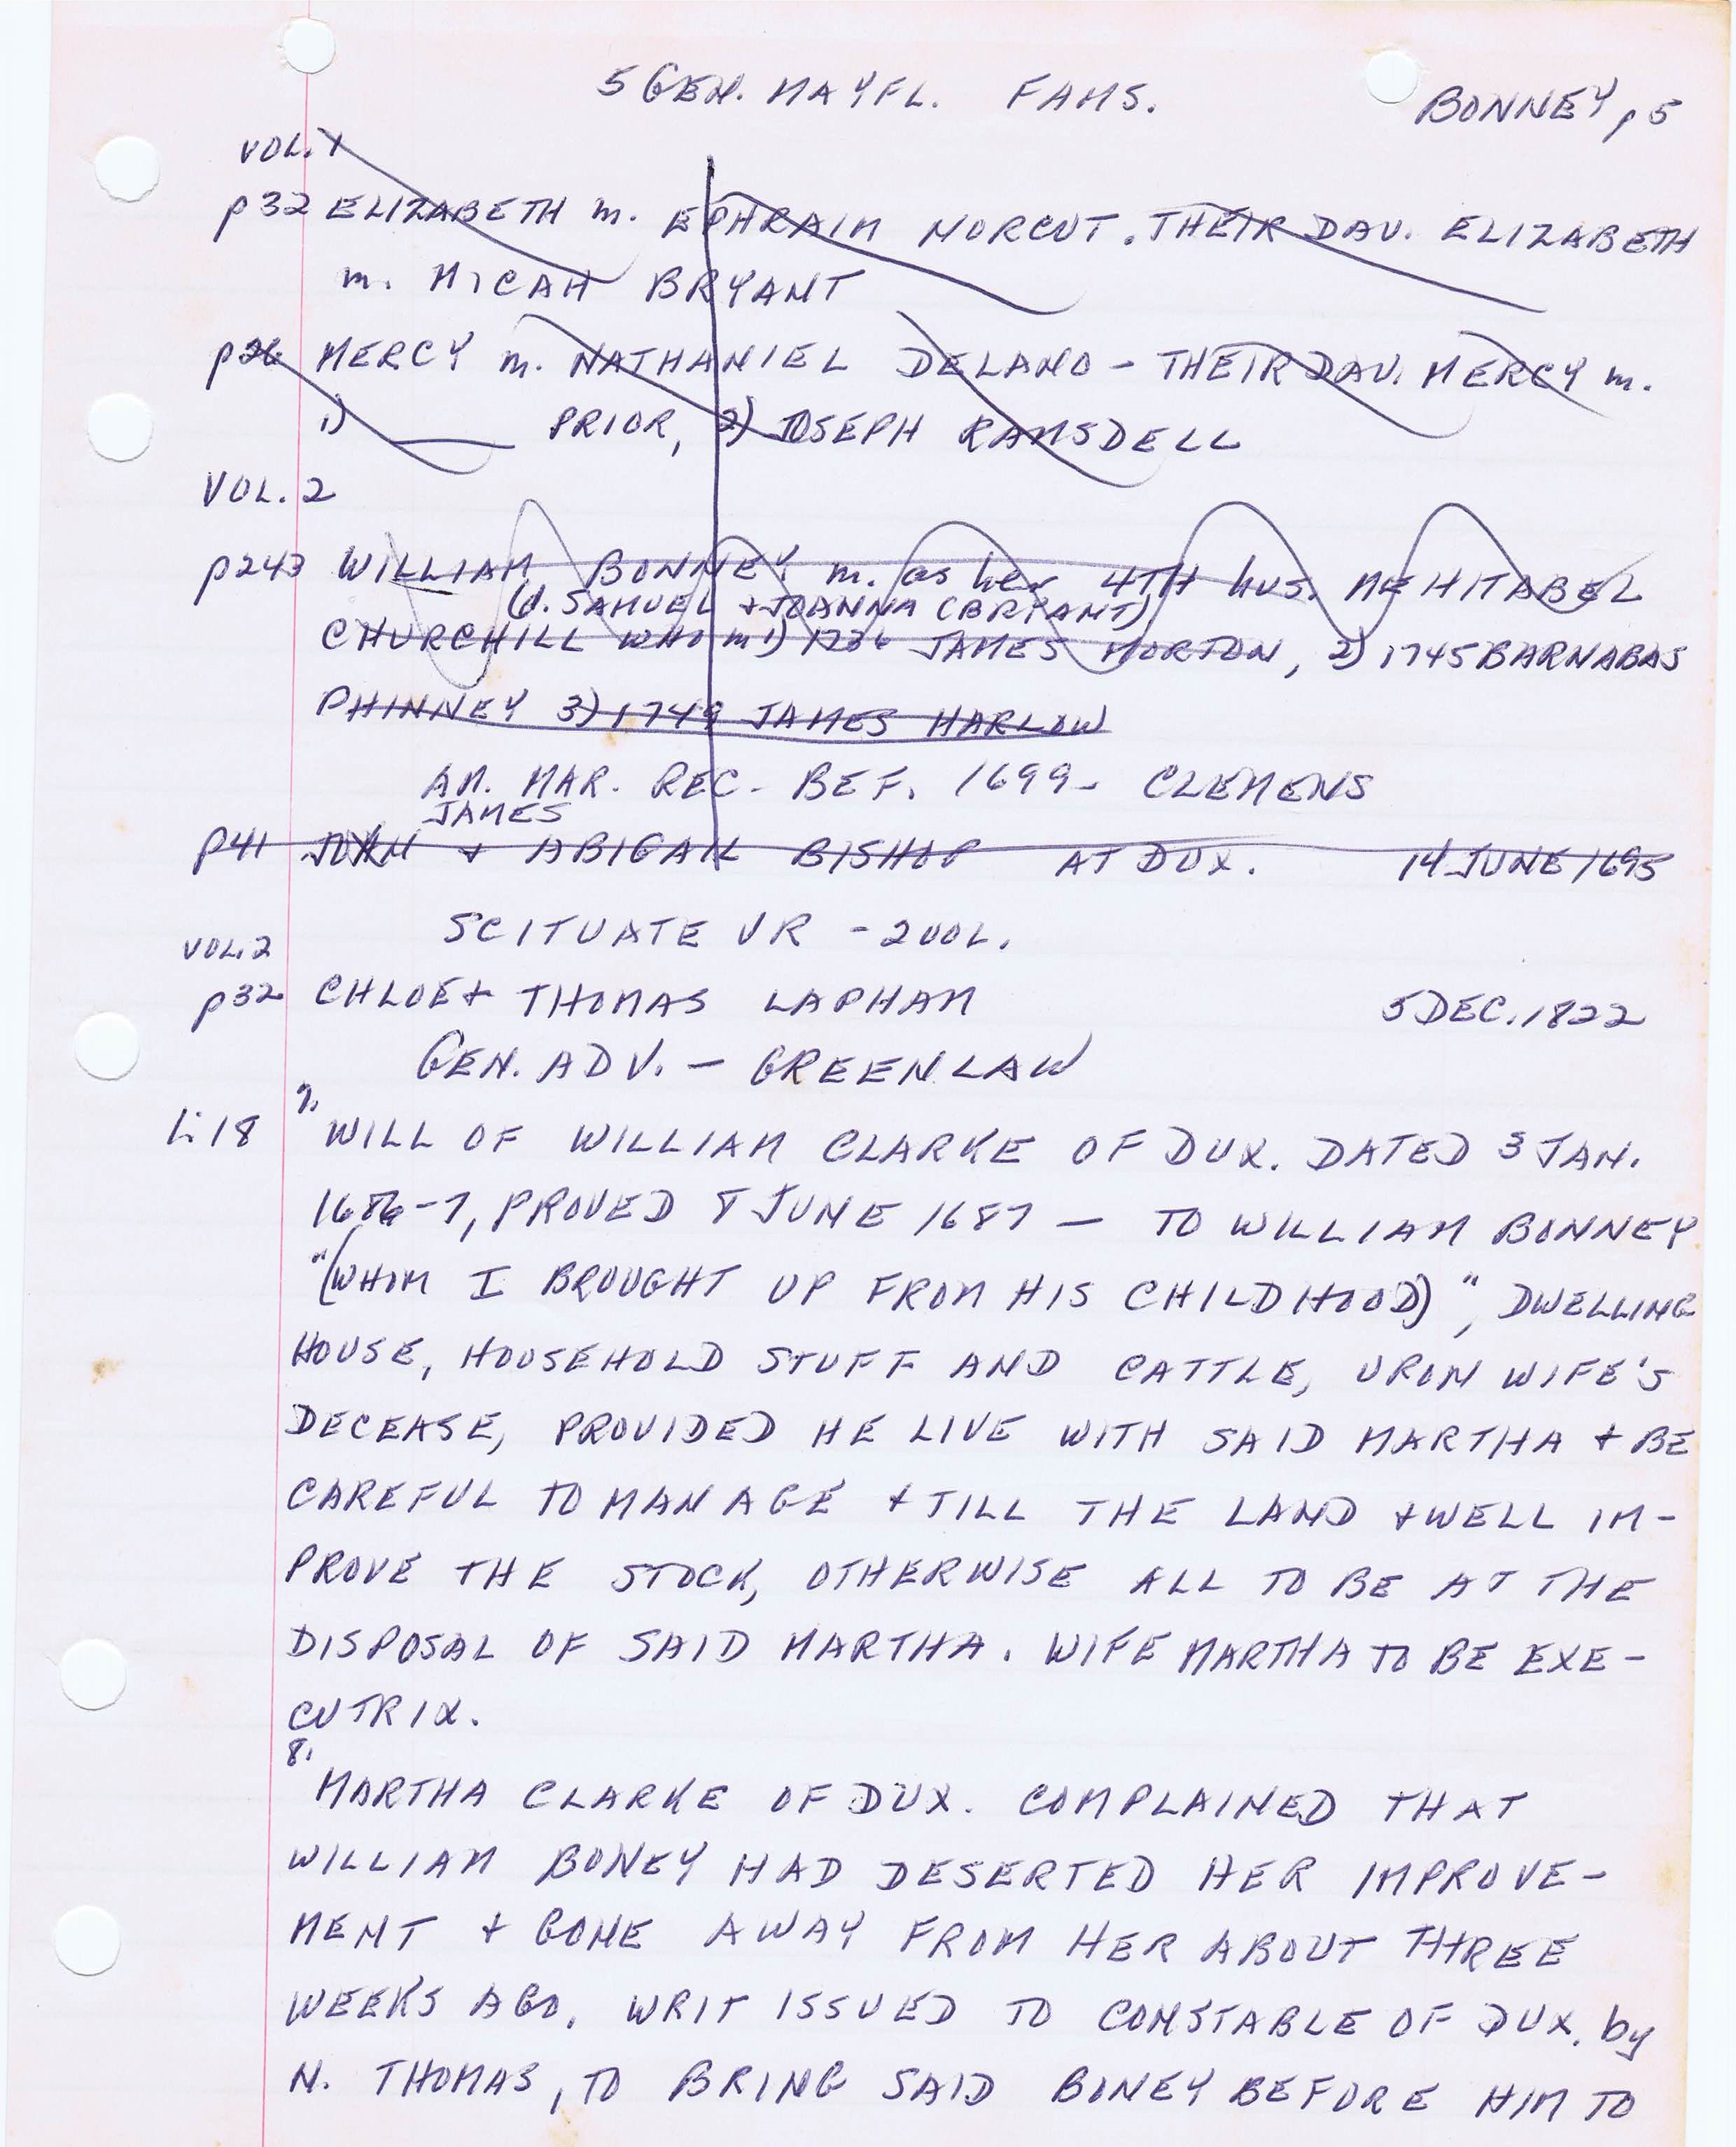 5 GEN. MAYFL. FAMS. BONNEY, p5
VOL. 1
p32 ELIZABETH m. EPHRAIM NORCUT. THEIR DAU. ELIZABETH
m. MICAH BRYANT
p26 MERCY m. NATHANIEL DELANO - THEIR DAU. MERCY m.
1) ____ PRIOR, 2) JOSEPH RAMSDELL
VOL. 2
p243 WILLIAM BONNEY m. as her 4TH hus. MEHITABEL
(d. SAMUEL + JOANNA (BRYANT)
CHURCHILL WHO m 1) 1736 JAMES MORTON, 2) 1745 BARNABAS
PHINNEY 3) 1749 JAMES HARLOW
AM. MAR. REC. BEF. 1699 - CLEMENS
JAMES
p41 JOHN + ABIGAIL BISHOP AT DUX. 14 JUNE 1695
SCITUATE VR - 2 VOL.
VOL. 2
p32 CHLOE + THOMAS LAPHAM 5 DEC. 1822
GEN. ADV. - GREENLAW
1:18 7. WILL OF WILLIAM CLARKE OF DUX. DATED 3 JAN.
1686-7, PROVED 8 JUNE 1687 — TO WILLIAM BONNEY
"(WHOM I BROUGHT UP FROM HIS CHILDHOOD)", DWELLING
HOUSE, HOUSEHOLD STUFF AND CATTLE, UPON WIFE'S
DECEASE, PROVIDED HE LIVE WITH SAID MARTHA + BE
CAREFUL TO MANAGE + TILL THE LAND + WELL IM-
PROVE THE STOCK, OTHERWISE ALL TO BE AT THE
DISPOSAL OF SAID MARTHA. WIFE MARTHA TO BE EXE-
CUTRIX.
8. MARTHA CLARKE OF DUX. COMPLAINED THAT
WILLIAM BONEY HAD DESERTED HER IMPROVE-
MENT + GONE AWAY FROM HER ABOUT THREE
WEEKS AGO. WRIT ISSUED TO CONSTABLE OF DUX. by
N. THOMAS, TO BRING SAID BONEY BEFORE HIM TO